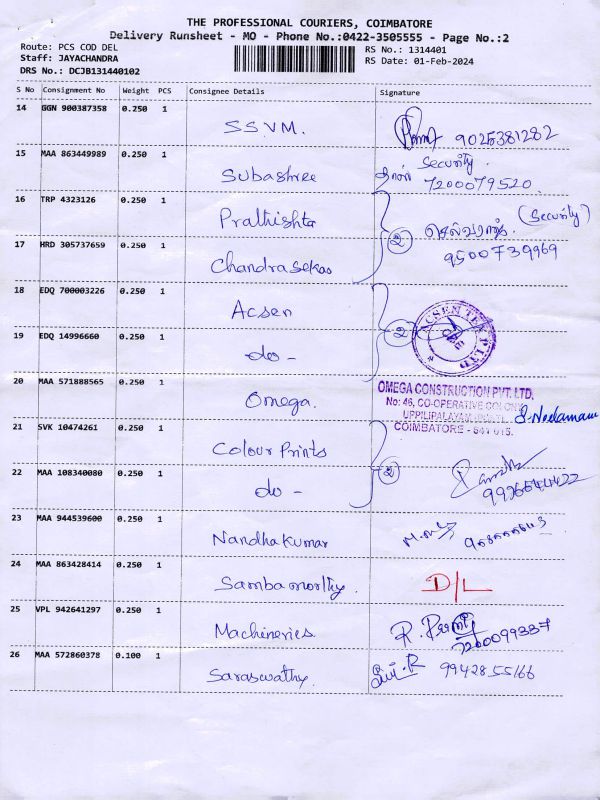 THE PROFESSIONAL COURIERS, COIMBATORE
Delivery Runsheet - MO - Phone No.:0422-3505555 - Page No.:2
Route: PCS COD DEL
RS No.: 1314401
Staff: JAYACHANDRA
RS Date: 01-Feb-2024
DRS No.: DCJB131440102
S No Consignment No Weight PCS Consignee Details Signature
14 GGN 900387358 0.250 1 SSVM. 9025381282
15 MAA 863449989 0.250 1 Subashree Security
7200079520
16 TRP 4323126 0.250 1 Prathishta (Security)
17 HRD 305737659 0.250 1 Chandrasekar 2 9500739969
18 EDQ 700003226 0.250 1 Acsen
19 EDQ 14996660 0.250 1 do - 2 ACSEN TEX P LTD
20 MAA 571888565 0.250 1 Omega. OMEGA CONSTRUCTION PVT. LTD,
No: 46, CO-OPERATIVE COLONY
UPPILIPALAYAM
COIMBATORE - 641 015.
21 SVK 10474261 0.250 1 Colour Prints
22 MAA 108340080 0.250 1 do - 2
23 MAA 944539600 0.250 1 Nandhakumar
24 MAA 863428414 0.250 1 Sambamorthy. D/L
25 VPL 942641297 0.250 1 Machineries
26 MAA 572860378 0.100 1 Saraswathy. 9942855166